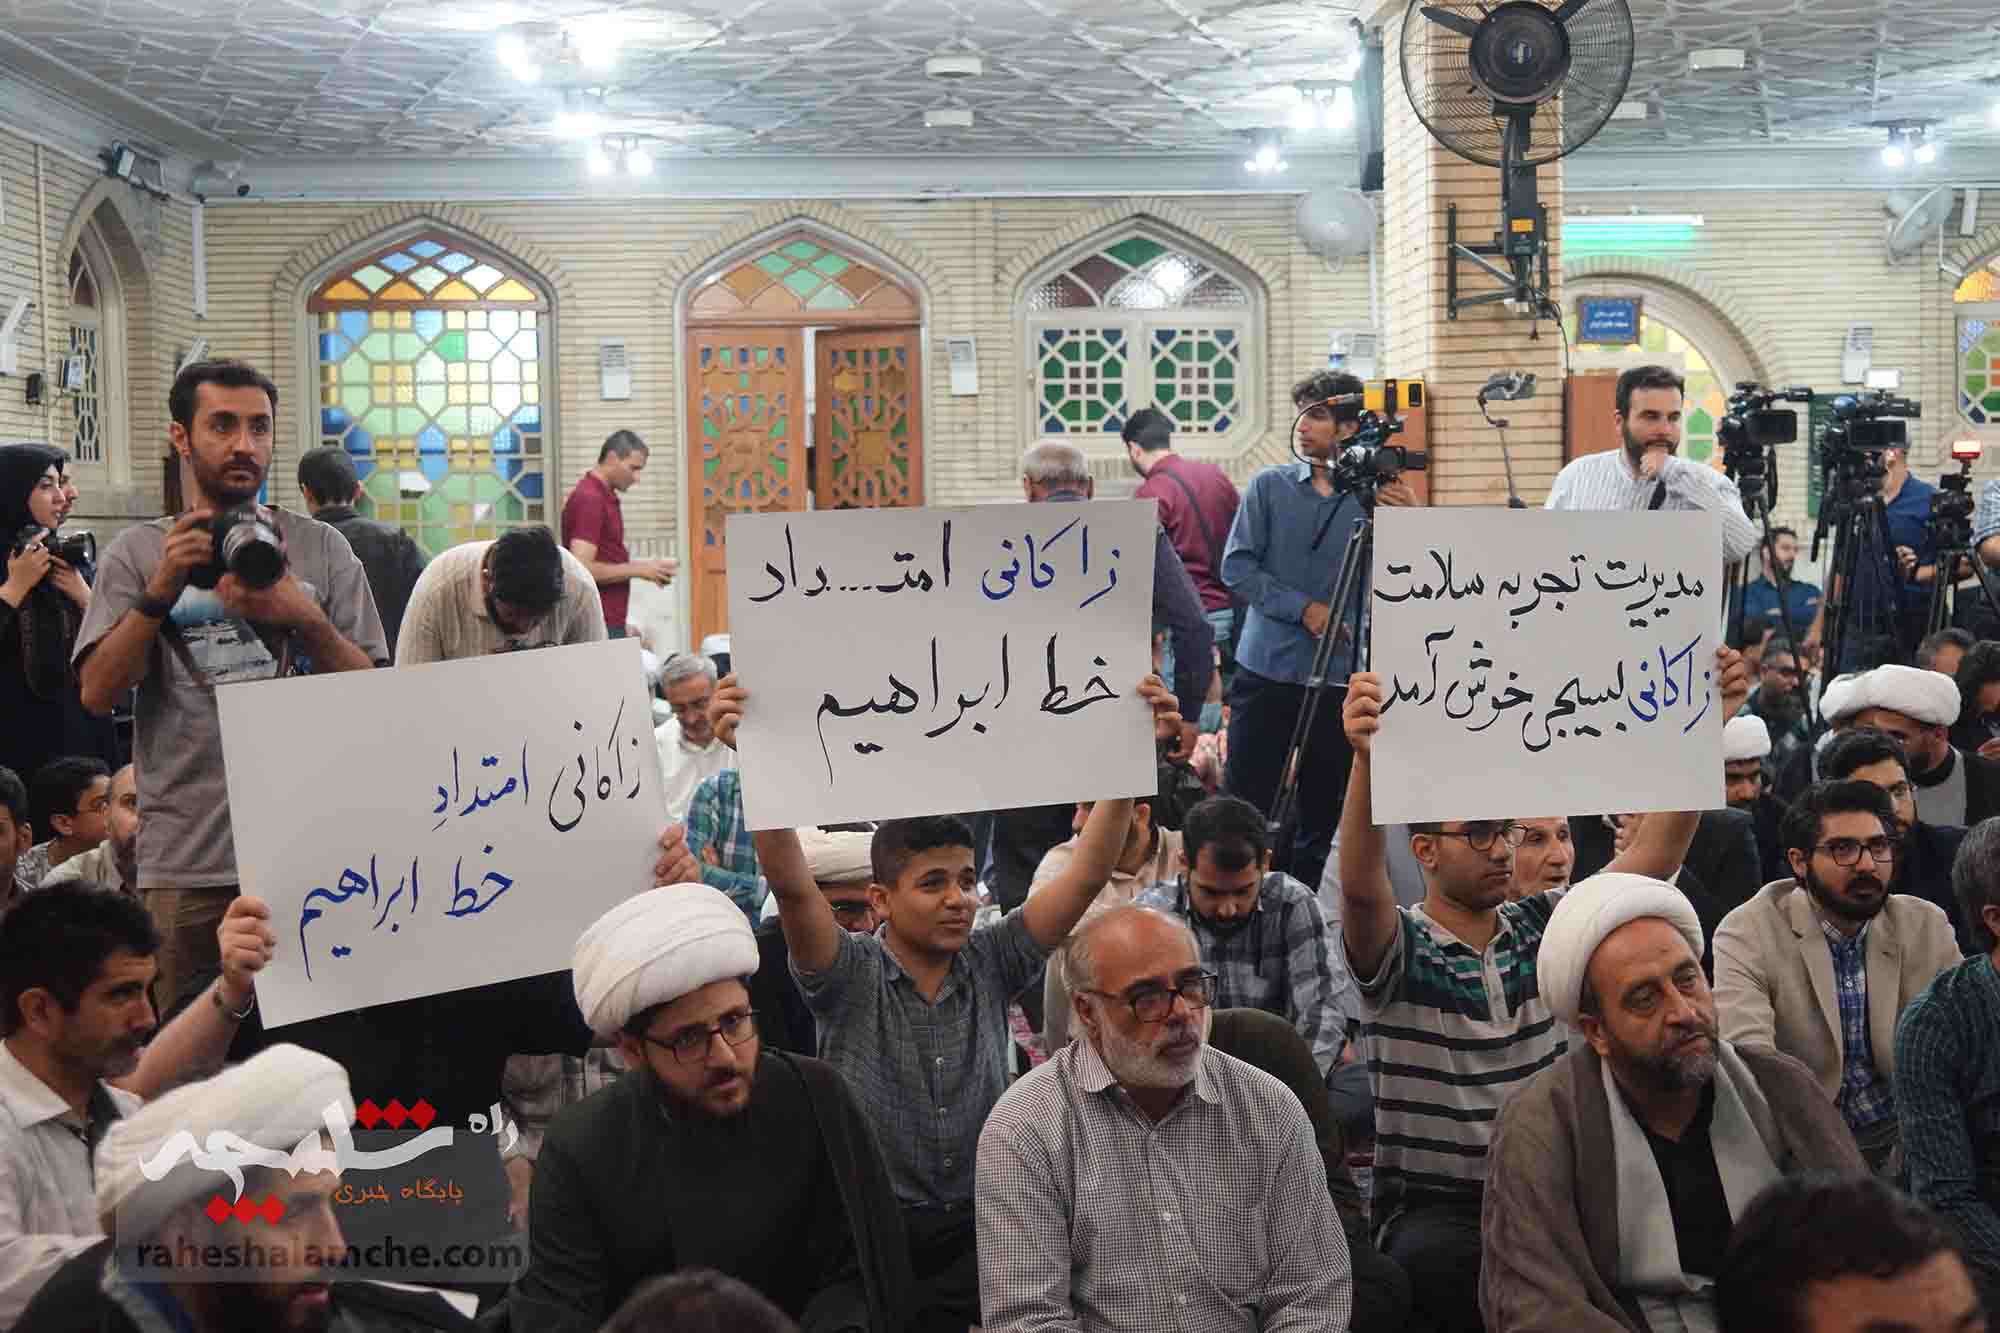 مدیریت تجربه سلامت
زاکانی بسیجی خوش آمد
زاکانی امتـ....ـداد
خط ابراهیم
زاکانی امتدادِ
خط ابراهیم
راه شلمچه
پایگاه خبری
raheshalamche.com